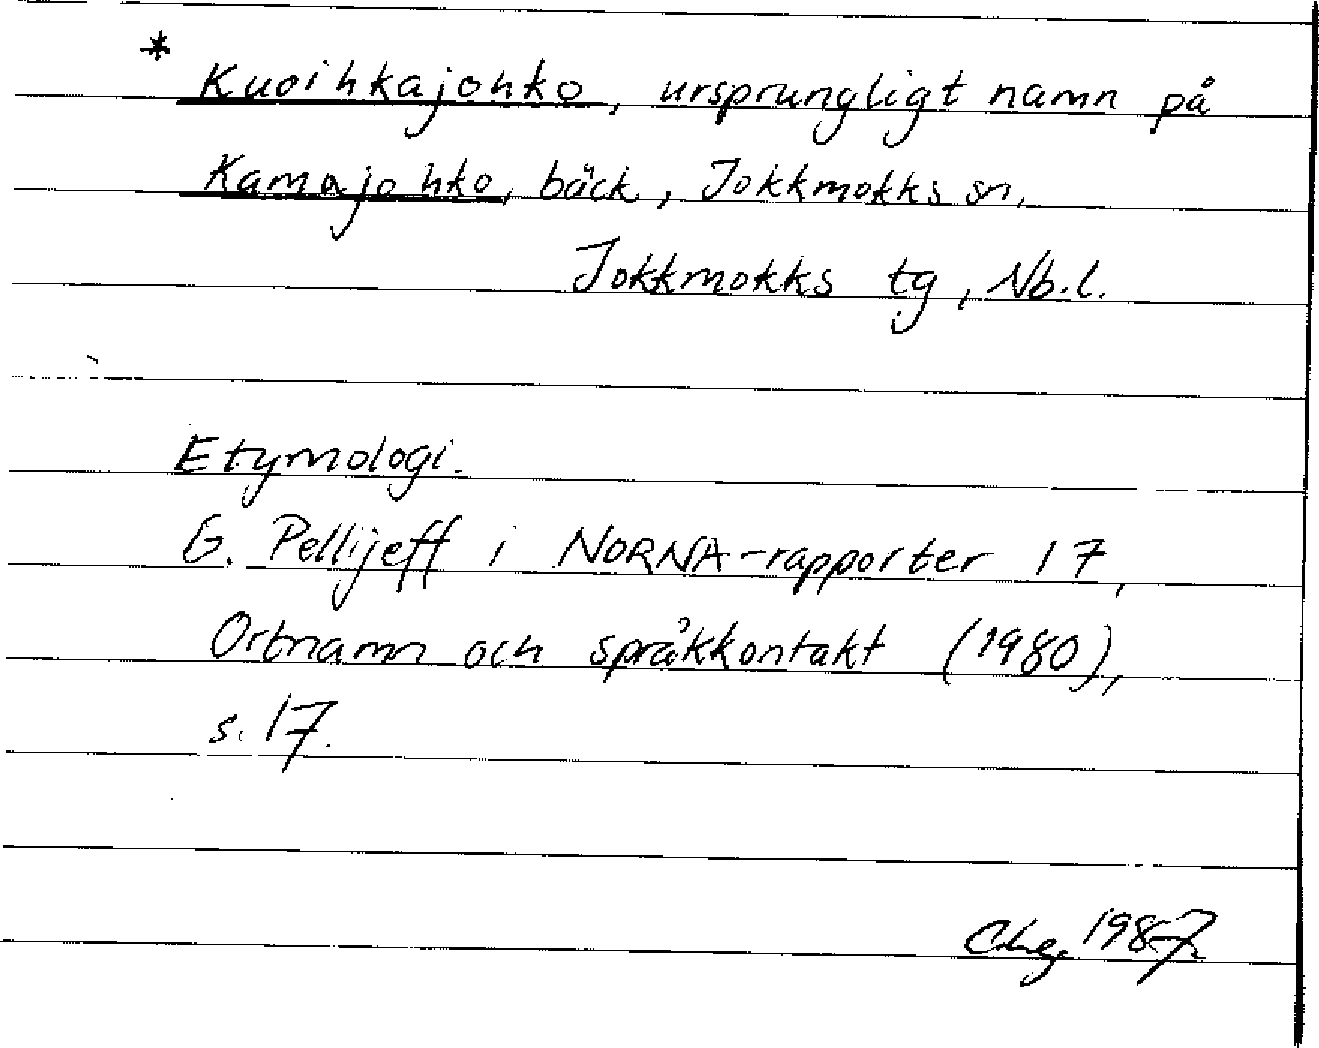 * Kuoihkajohko, ursprungligt namn på
Kamajohko, bäck, Jokkmokks sn,
Jokkmokks tg, Nb.l.
Etymologi.
G. Pellijeff i NORNA-rapporter 17,
Ortnamn och språkkontakt (1980),
s. 17.
1987